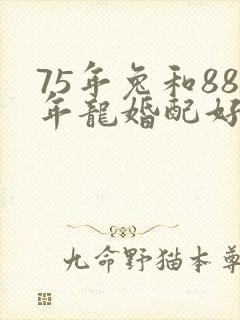 75年兔和88
年龍婚配好
九命野猫本尊